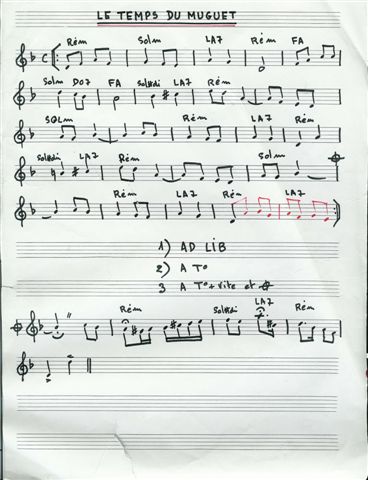 LE TEMPS DU MUGUET
Rém Solm LA7 Rém FA
Solm DO7 FA LA7 Rém
SOLm Rém LA7
LA7 Rém Solm
Rém LA7 Rém LA7
1) AD LIB
2) A T°
3 A T° + vite et
Rém LA7 Rém